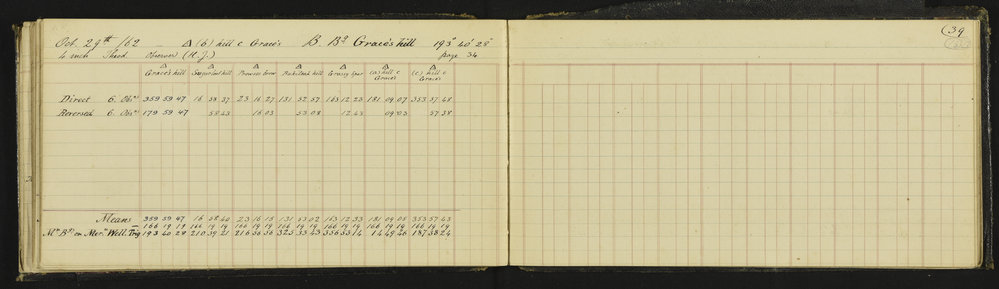 39
Oct. 29th /62 △ (b) hill c Grace's B. Bg Grace's hill 193° 40' 28"
4 inch Theod. Observer (H.J.) page 34
△ △ △ △ △ △ △
Grace's hill Sugarloaf hill Grassy Spur (a) hill c Grace's (c) hill c Grace's
Direct 6. Obns 359 59 47 16 58 37 23 16 27 131 52 57 163 12 23 181 09 07 353 57 48
Reversed 6. Obns 179 59 47 58 43 16 03 53 08 12 43 09 03 57 38
Means 359 59 47 16 58 40 23 16 15 131 53 02 163 12 33 181 09 05 353 57 43
— 166 19 19 166 19 19 166 19 19 166 19 19 166 19 19 166 19 19 166 19 19
Mn Bgs on Mern Well. Trig 193 40 28 210 39 21 216 56 56 325 33 43 356 53 14 14 49 46 187 38 24